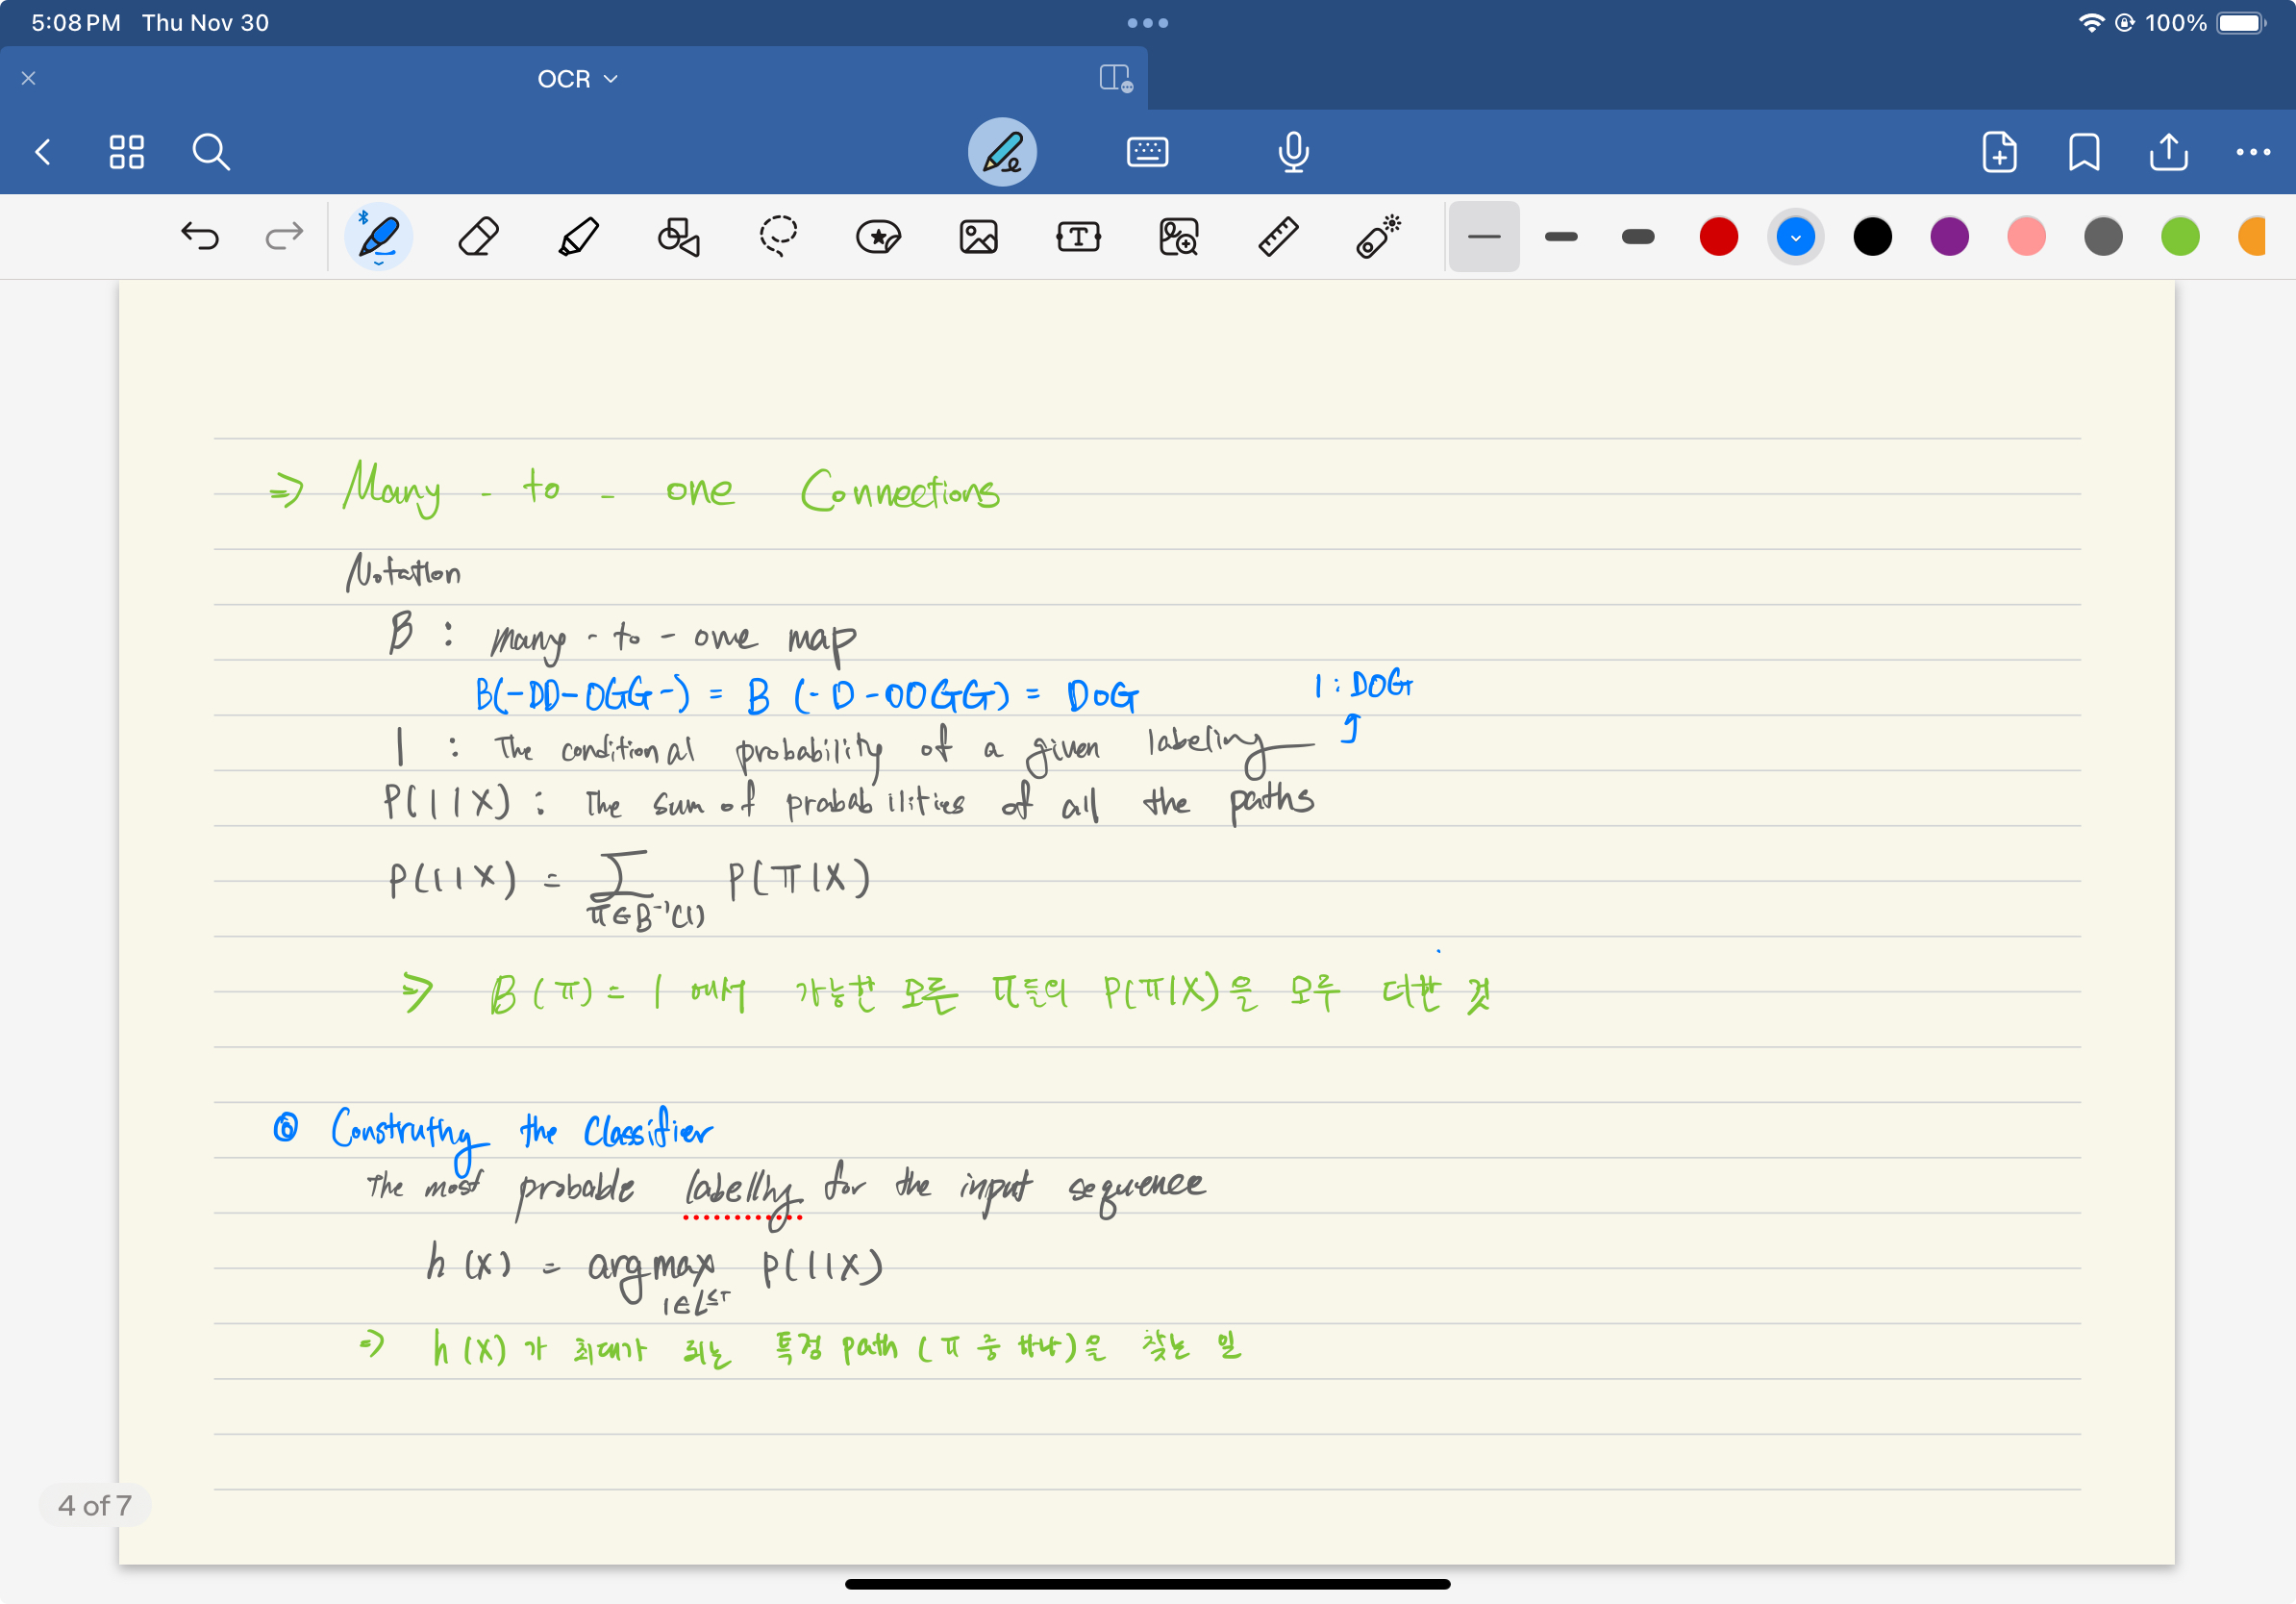 5:08 PM Thu Nov 30 100%
OCR
⇒ Many - to - one Connections
Notation
B : Many - to - one map
B(-DD-OGG-) = B (-D-OOGG) = DOG
l : DOG
l : The conditional probability of a given labeling
P(l|X) : The sum of probabilities of all the paths
P(l|X) = ∑ P(π|X)
π∈B⁻¹(l)
⇒ B(π) = l 에서 가능한 모든 π들의 P(π|X)을 모두 더한 것
⓪ Constructing the Classifier
The most probable labelling for the input sequence
h(X) = arg max P(l|X)
l∈L≤T
⇒ h(X)가 최대가 되는 특정 path (π 중 하나)을 찾는 일
4 of 7